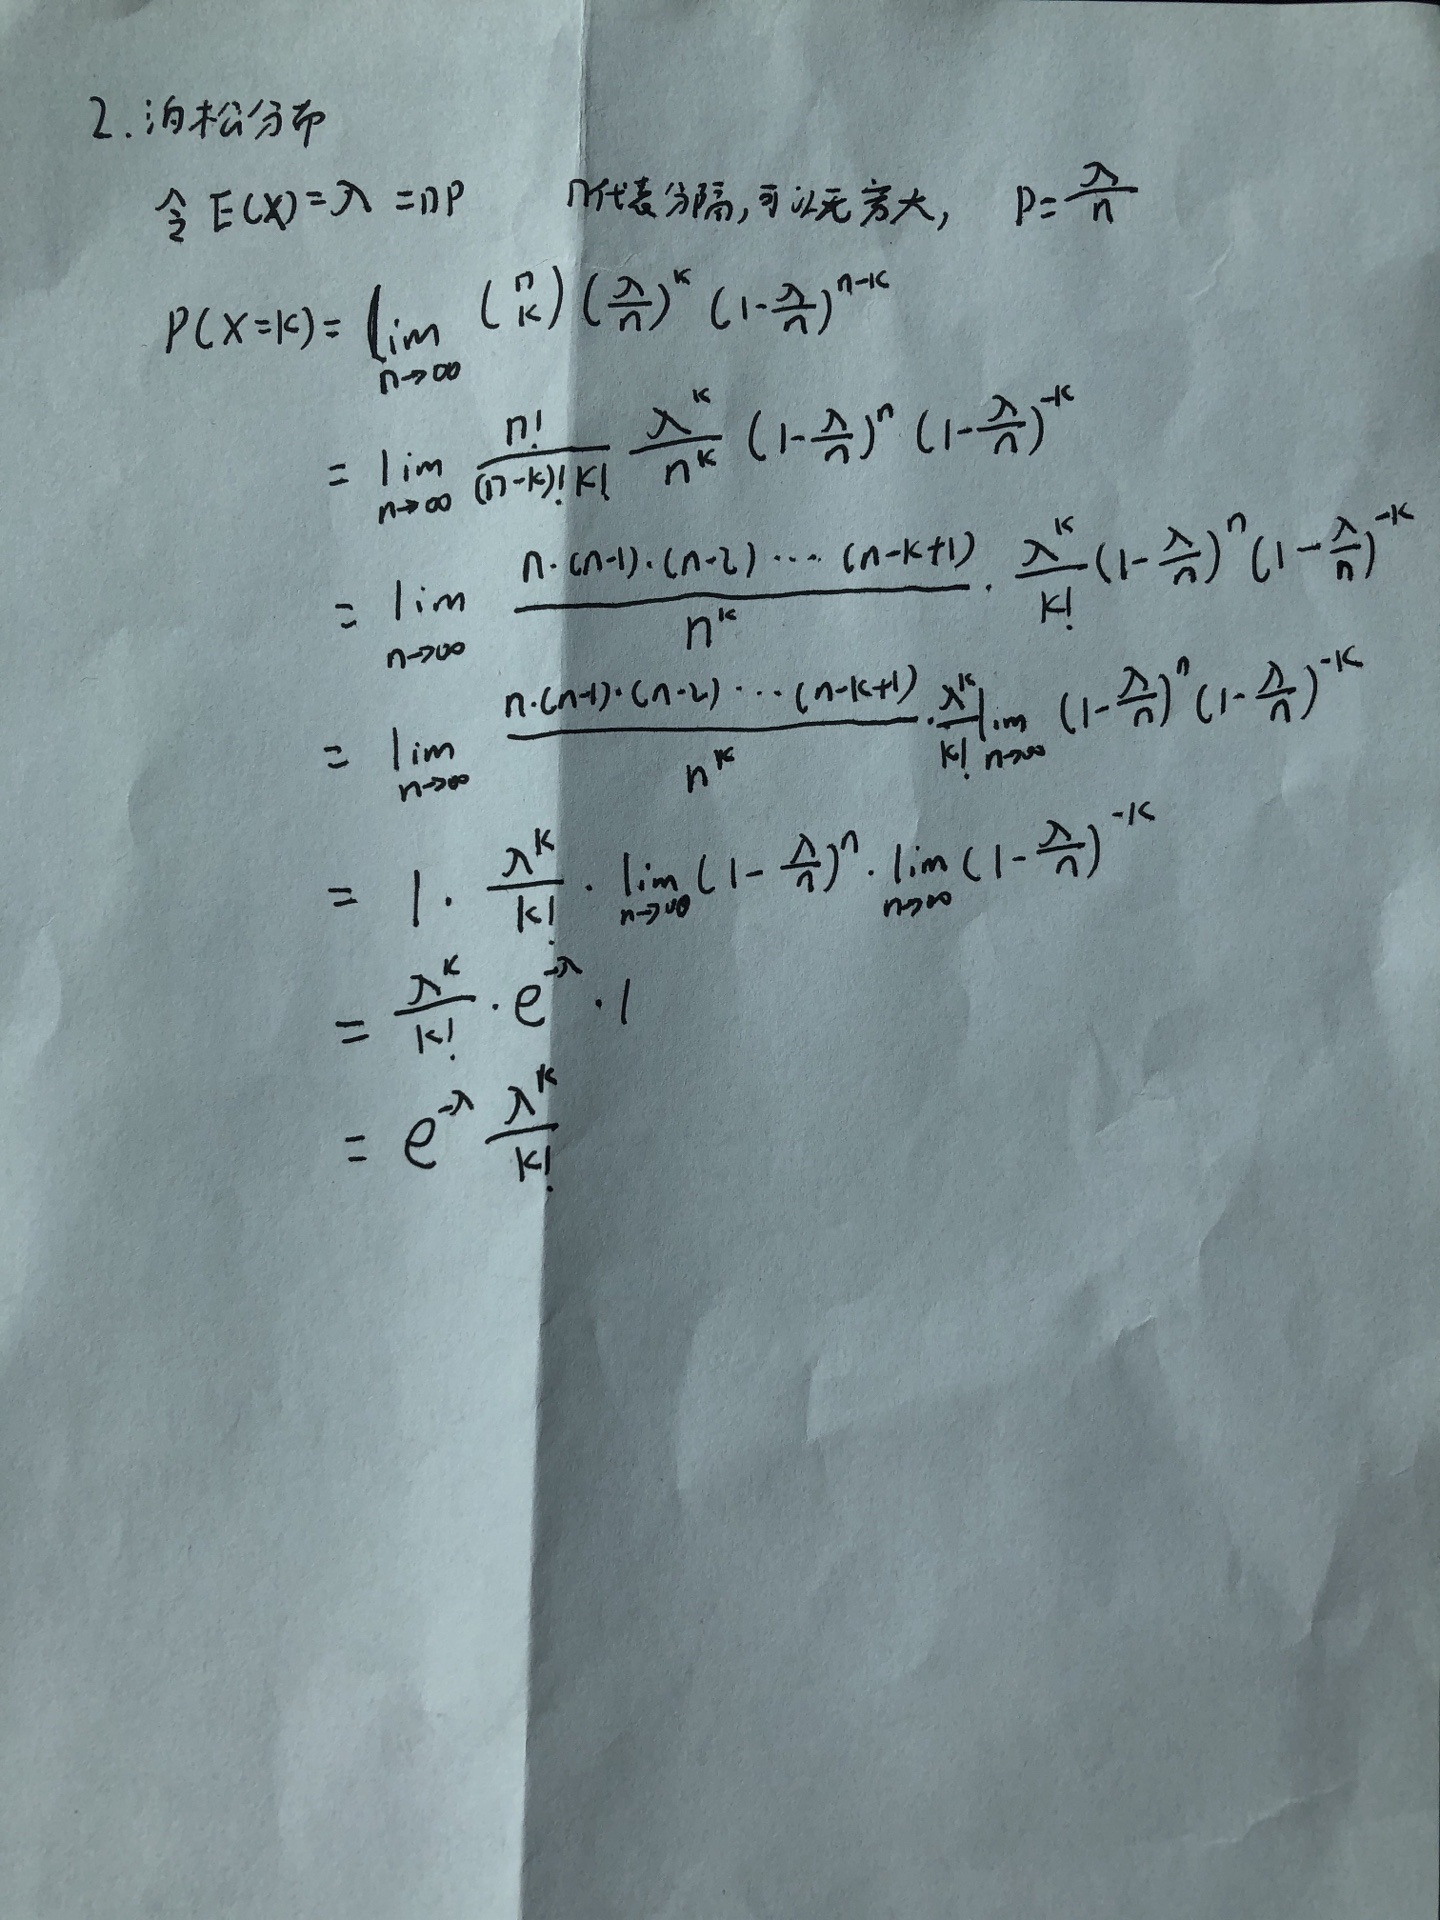 2. 泊松分布
令 E(X)=λ=np n代表分隔,可以无穷大, P=λ/n
P(X=k)= lim n→∞ (n k) (λ/n)^k (1-λ/n)^n-k
= lim n→∞ n!/(n-k)!k! λ^k/n^k (1-λ/n)^n (1-λ/n)^-k
= lim n→∞ n·(n-1)·(n-2)···(n-k+1)/n^k · λ^k/k! (1-λ/n)^n (1-λ/n)^-k
= lim n→∞ n·(n-1)·(n-2)···(n-k+1)/n^k · λ^k/k! lim n→∞ (1-λ/n)^n (1-λ/n)^-k
= 1 · λ^k/k! · lim n→∞ (1-λ/n)^n · lim n→∞ (1-λ/n)^-k
= λ^k/k! · e^-λ · 1
= e^-λ λ^k/k!